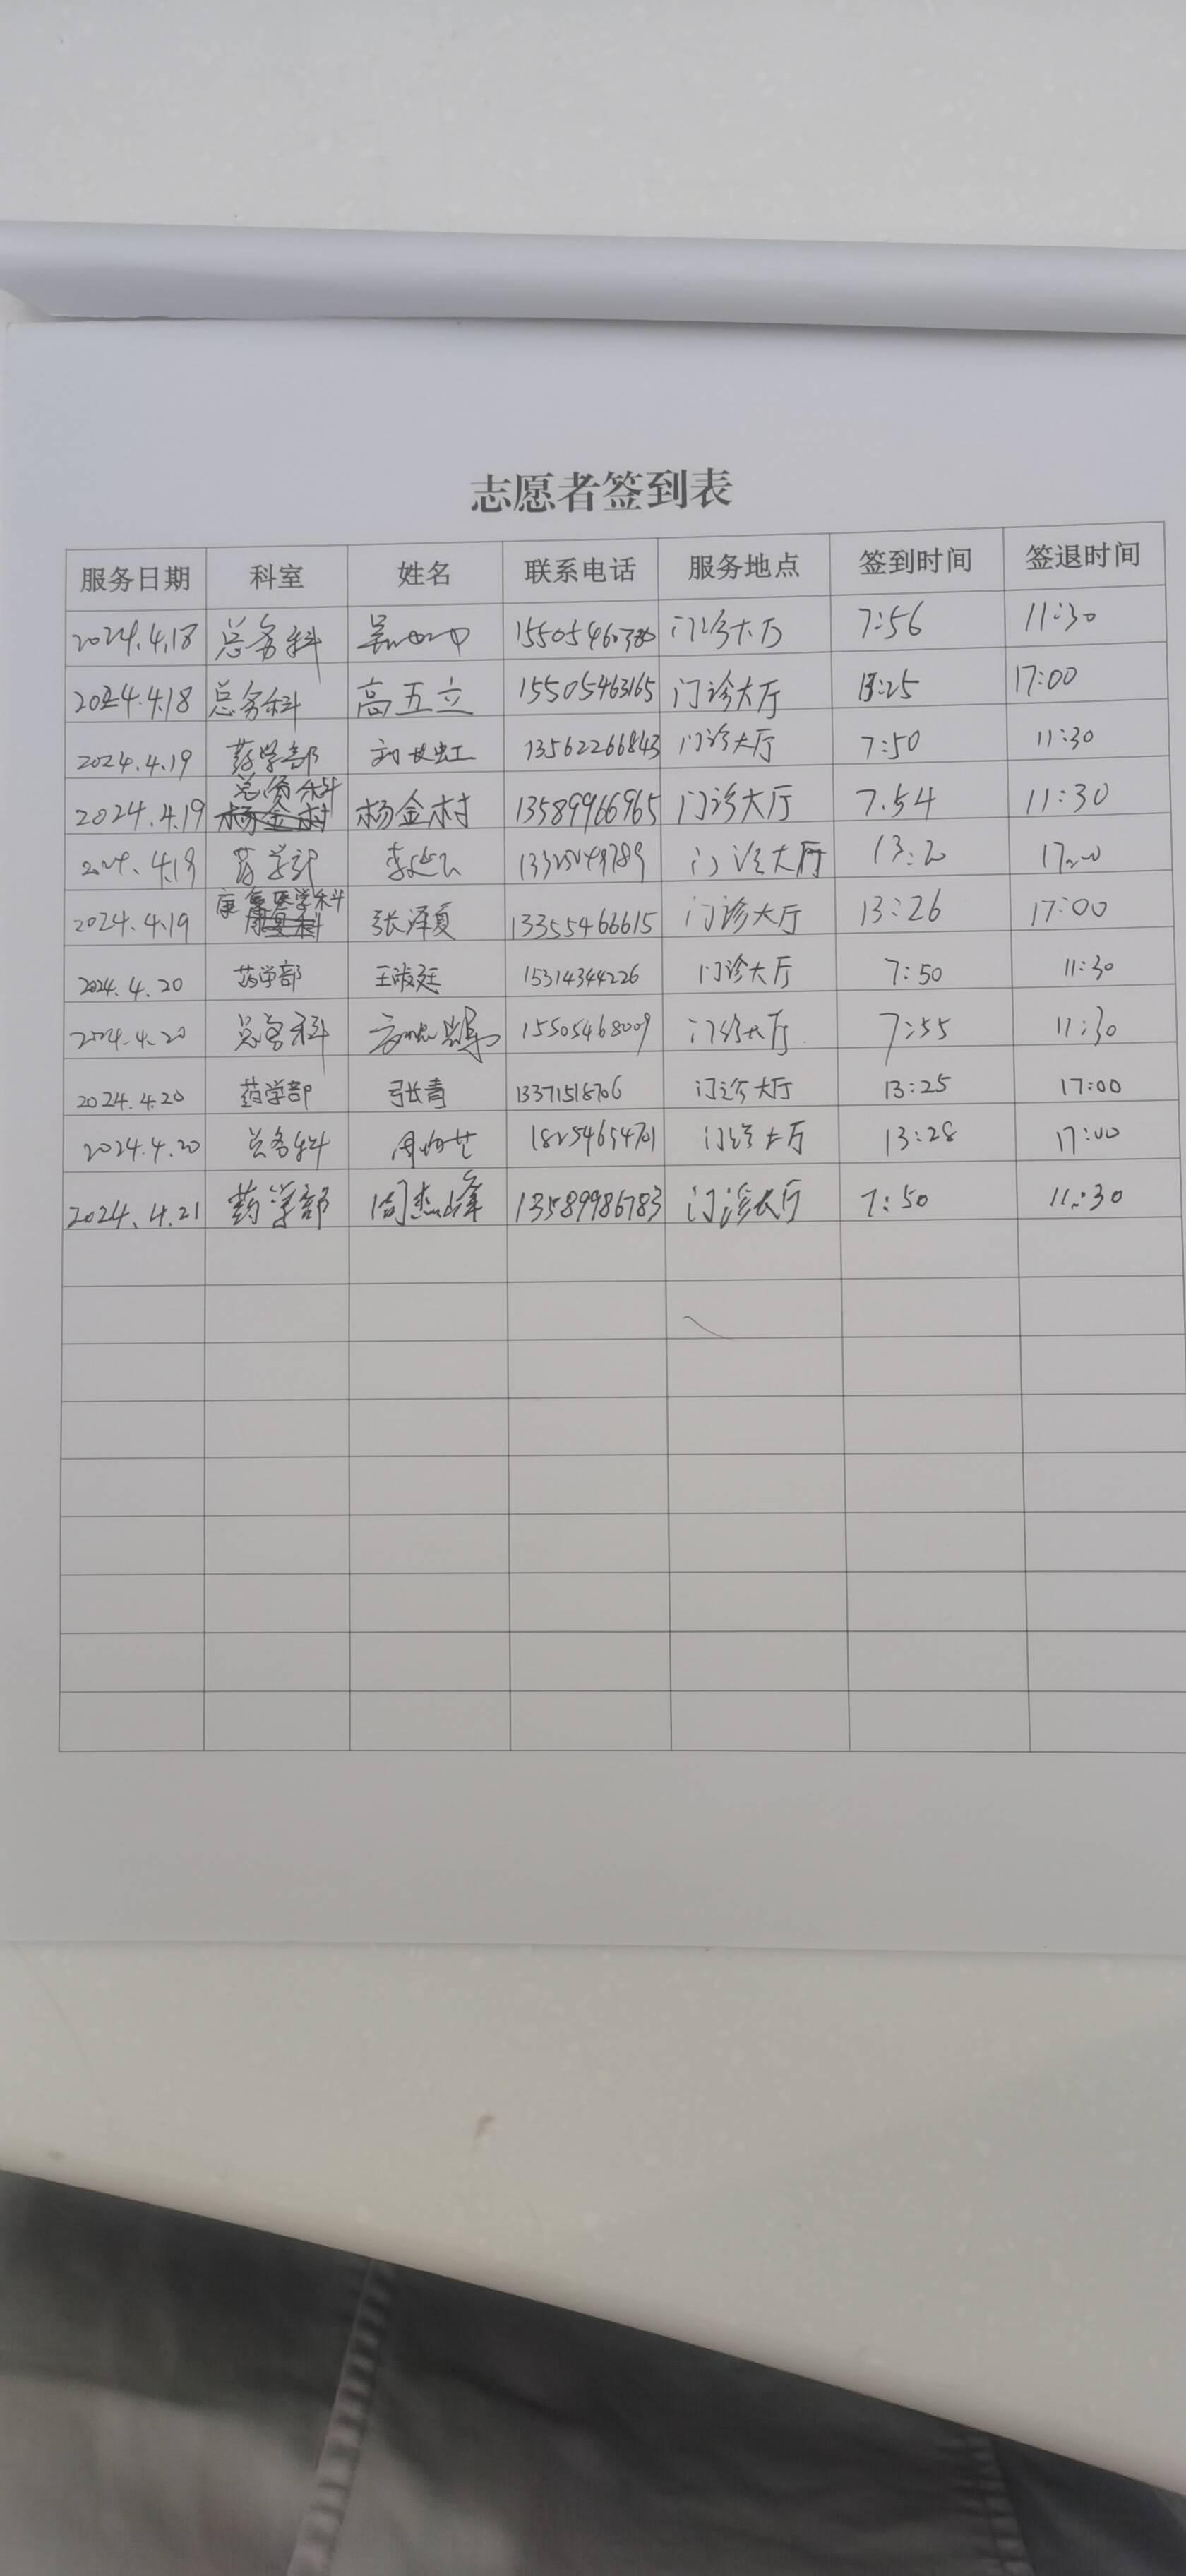 志愿者签到表
服务日期 科室 姓名 联系电话 服务地点 签到时间 签退时间
2024.4.18 总务科 门诊大厅 7:56 11:30
2024.4.18 总务科 高五立 15505463165 门诊大厅 13:25 17:00
2024.4.19 药学部 13562266843 门诊大厅 7:50 11:30
2024.4.19 总务科 杨金村 13589966965 门诊大厅 7.54 11:30
2024.4.19 药学部 门诊大厅 17:00
2024.4.19 康复医学科 张泽夏 13355466615 门诊大厅 13:26 17:00
2024.4.20 药学部 15314344226 门诊大厅 7:50 11:30
2024.4.20 总务科 15505468009 门诊大厅 7:55 11:30
2024.4.20 药学部 张青 13371518706 门诊大厅 13:25 17:00
2024.4.20 总务科 18254694701 门诊大厅 13:28 17:00
2024.4.21 药学部 13589986783 门诊大厅 7:50 11:30